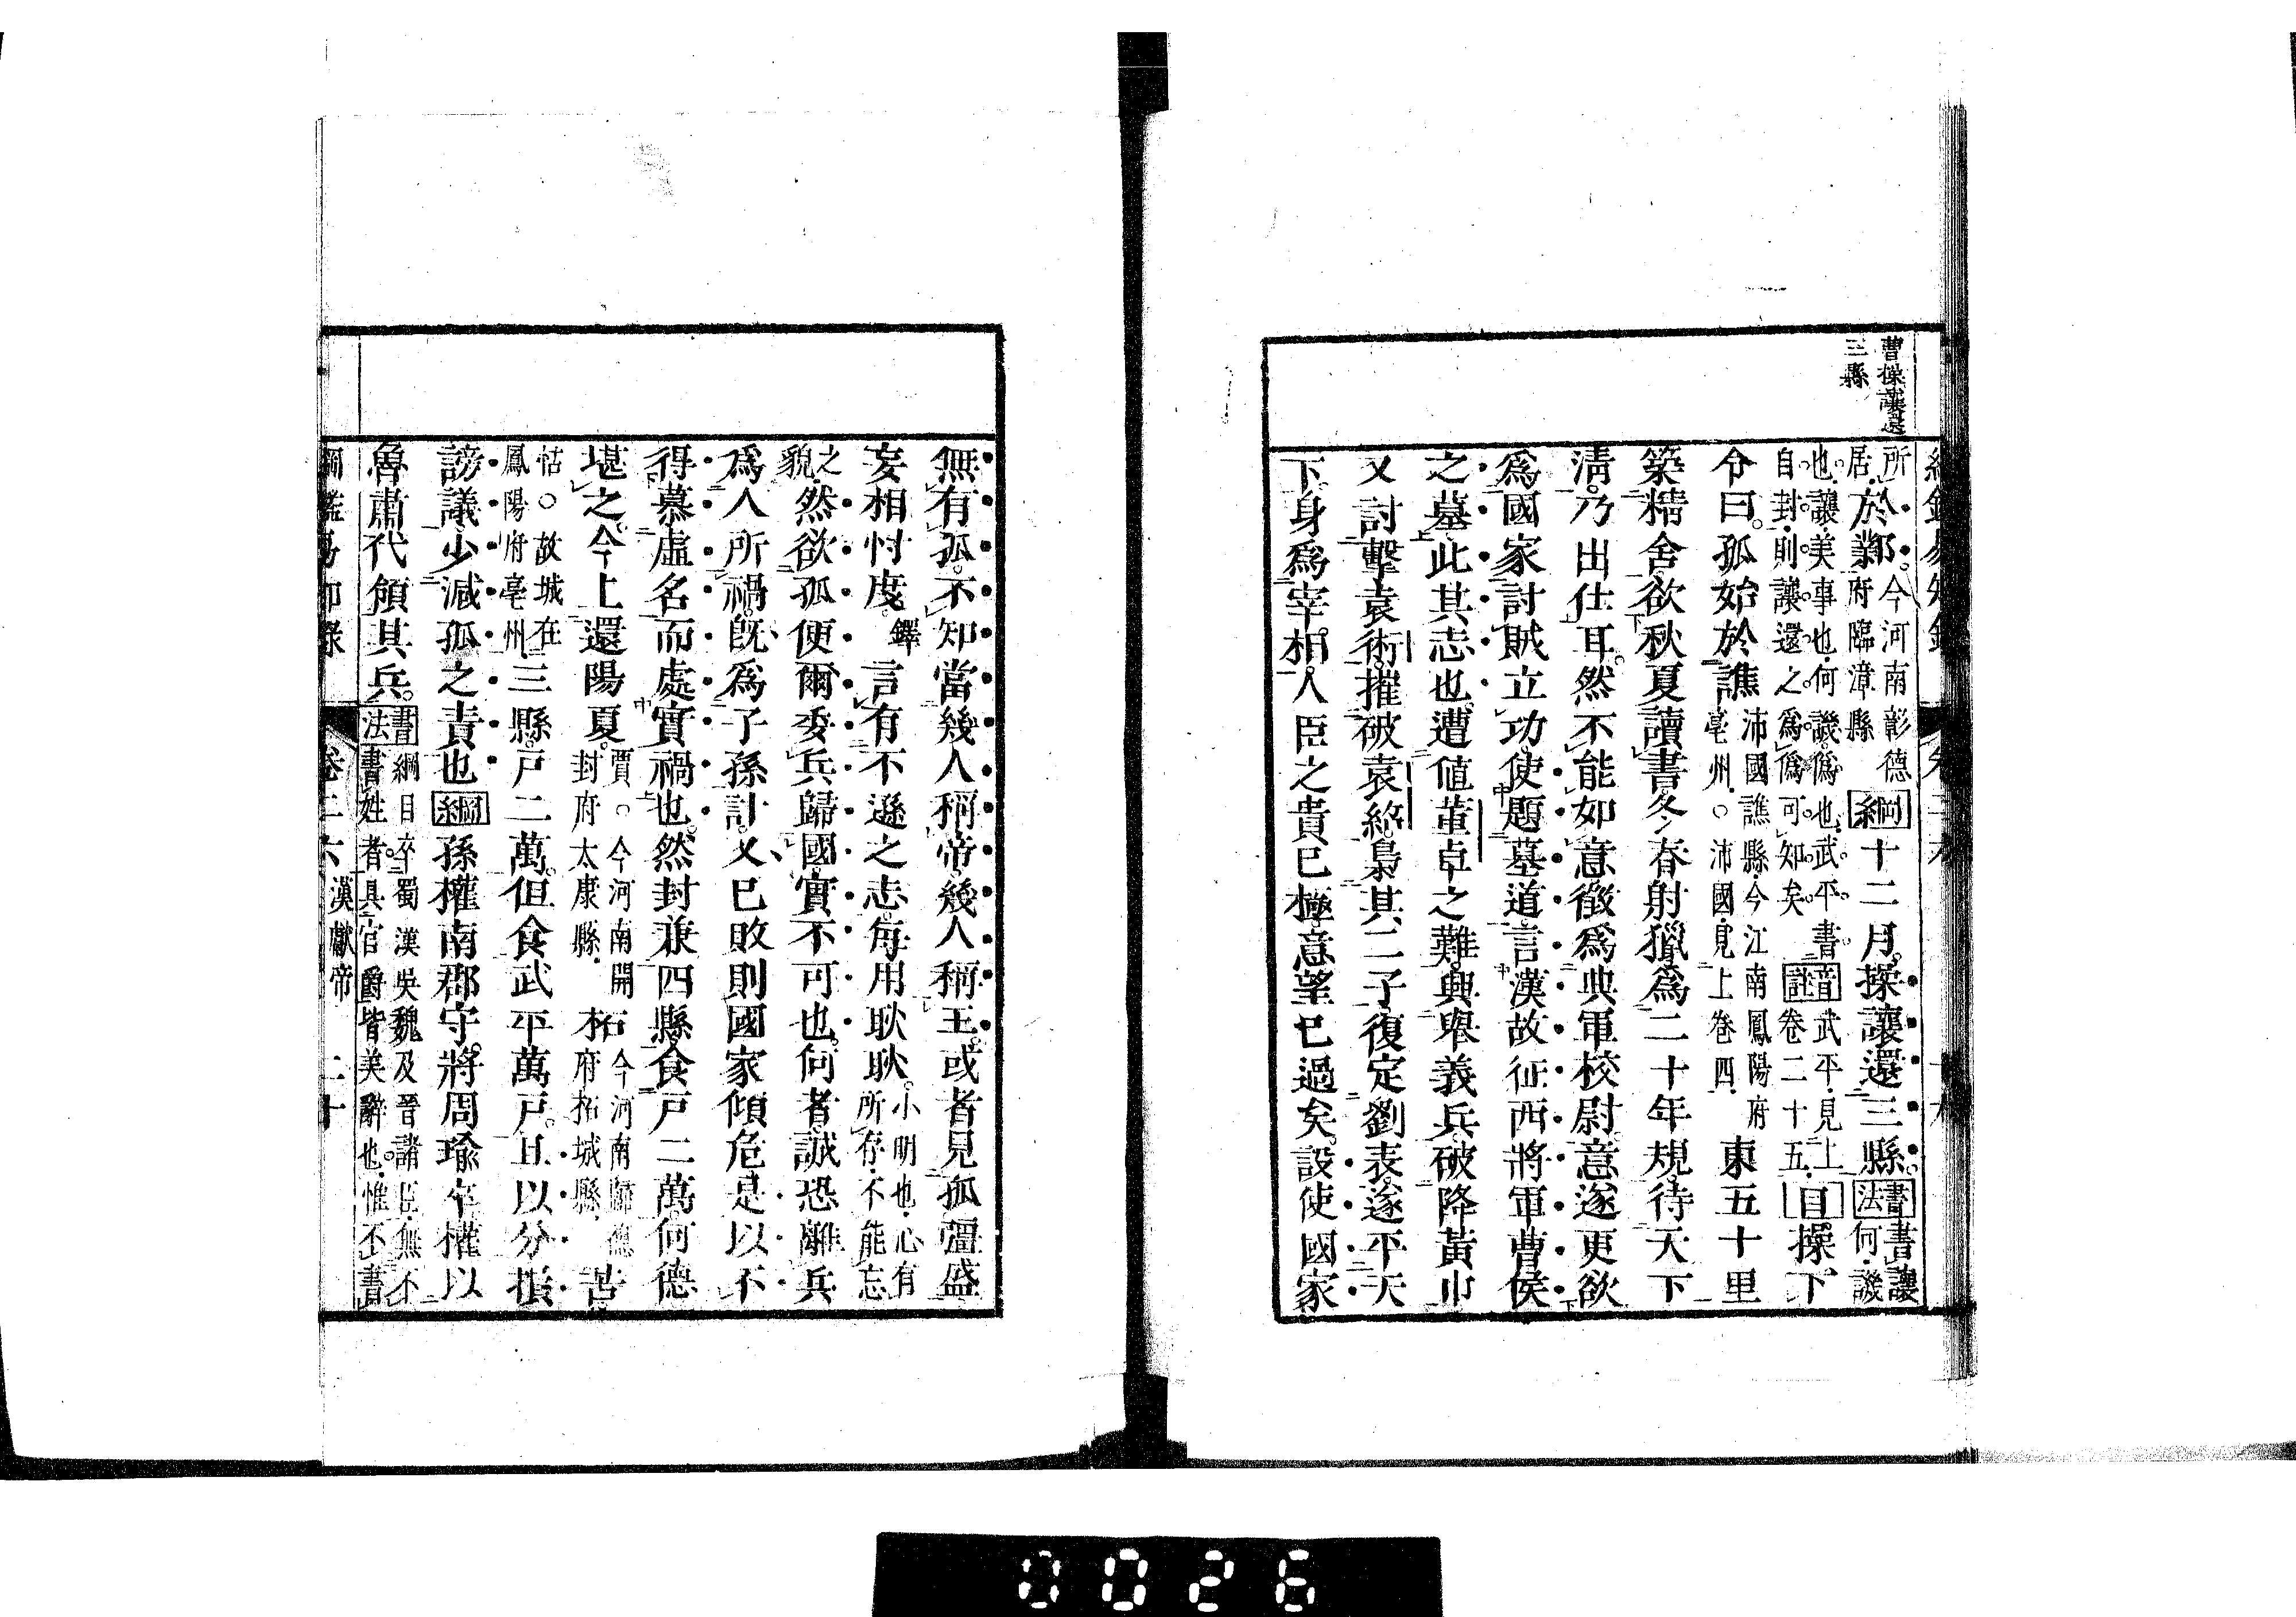 曹操讓還
三縣
所
居於鄴今河南彰德
府臨漳縣綱十二月操讓還三縣書法書讓
何譏
也讓美事也何譏僞也武平書
自封則讓還之爲僞可知矣音註武平見上
卷二十五目操下
令曰孤始於譙沛國譙縣今江南鳳陽府
亳州○沛國見上卷四東五十里
築精舍欲秋夏讀書冬春射獵爲二十年規待天下
淸乃出仕耳然不能如意徵爲典軍校尉意遂更欲
爲國家討賊立功使題墓道言漢故征西將軍曹侯
之墓此其志也遭値董卓之難興舉義兵破降黃巾
又討擊袁術摧破袁紹梟其二子復定劉表遂平天
下身爲宰相人臣之貴已極意望已過矣設使國家
無有孤不知當幾人稱帝幾人稱王或者見孤彊盛
妄相忖度鐸言有不遜之志每用耿耿小明也心有
所存不能忘
之
貌然欲孤便爾委兵歸國實不可也何者誠恐離兵
爲人所禍旣爲子孫計又已敗則國家傾危是以不
得慕虛名而處實禍也然封兼四縣食戸二萬何德
堪之今上還陽夏賈○今河南開
封府太康縣柘今河南歸德
府柘城縣苦
怙○故城在
鳳陽府亳州三縣戸二萬但食武平萬戸且以分損
謗議少減孤之責也綱孫權南郡守將周瑜卒權以
魯肅代領其兵書法綱目卒蜀漢吳魏及晉諸臣無不
書姓者具官爵皆美辭也惟不書
綱鑑易知錄 卷二六 漢獻帝 二十